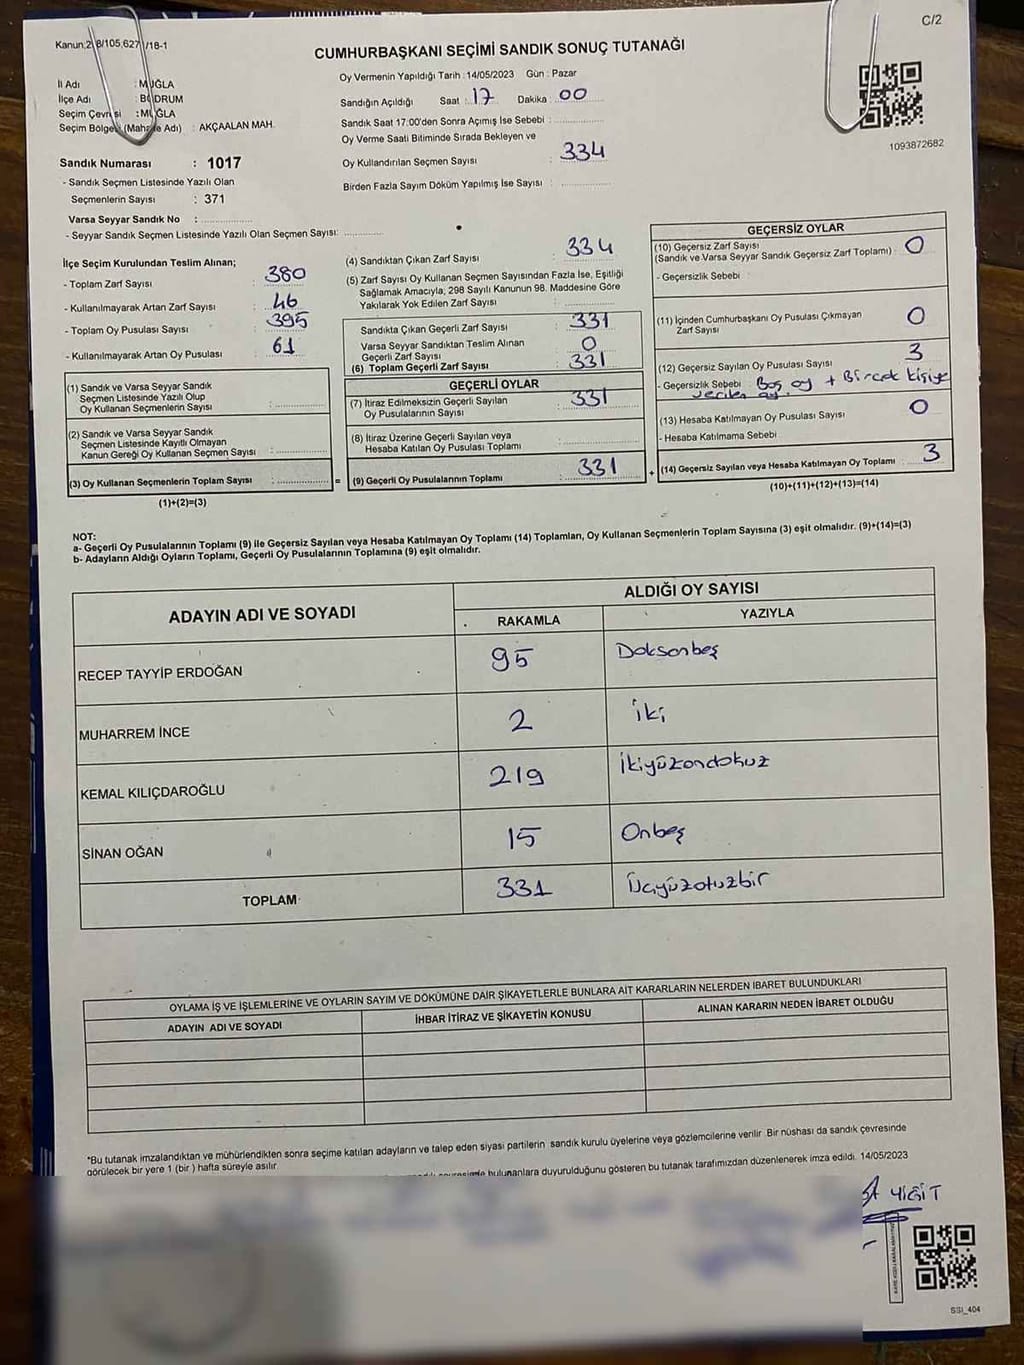 C/2
Kanun:298/105,627 /18-1
CUMHURBAŞKANI SEÇİMİ SANDIK SONUÇ TUTANAĞI
İl Adı : MUĞLA
İlçe Adı : BODRUM
Seçim Çevresi : MUĞLA
Seçim Bölgesi (Mahalle Adı) : AKÇAALAN MAH.
Sandık Numarası : 1017
- Sandık Seçmen Listesinde Yazılı Olan
Seçmenlerin Sayısı : 371
Varsa Seyyar Sandık No :
- Seyyar Sandık Seçmen Listesinde Yazılı Olan Seçmen Sayısı:
Oy Vermenin Yapıldığı Tarih : 14/05/2023 Gün : Pazar
Sandığın Açıldığı Saat : 17 Dakika : 00
Sandık Saat 17:00'den Sonra Açımış İse Sebebi :
Oy Verme Saati Bitiminde Sırada Bekleyen ve
Oy Kullandırılan Seçmen Sayısı : 334
Birden Fazla Sayım Döküm Yapılmış İse Sayısı :
1093872682
İlçe Seçim Kurulundan Teslim Alınan;
- Toplam Zarf Sayısı : 380
- Kullanılmayarak Artan Zarf Sayısı : 46
- Toplam Oy Pusulası Sayısı : 395
- Kullanılmayarak Artan Oy Pusulası : 61
(1) Sandık ve Varsa Seyyar Sandık
Seçmen Listesinde Yazılı Olup
Oy Kullanan Seçmenlerin Sayısı :
(2) Sandık ve Varsa Seyyar Sandık
Seçmen Listesinde Kayıtlı Olmayan
Kanun Gereği Oy Kullanan Seçmen Sayısı :
(3) Oy Kullanan Seçmenlerin Toplam Sayısı : =
(1)+(2)=(3)
(4) Sandıktan Çıkan Zarf Sayısı : 334
(5) Zarf Sayısı Oy Kullanan Seçmen Sayısından Fazla İse, Eşitliği
Sağlamak Amacıyla; 298 Sayılı Kanunun 98. Maddesine Göre
Yakılarak Yok Edilen Zarf Sayısı :
Sandıkta Çıkan Geçerli Zarf Sayısı : 331
Varsa Seyyar Sandıktan Teslim Alınan
Geçerli Zarf Sayısı : 0
(6) Toplam Geçerli Zarf Sayısı : 331
GEÇERLİ OYLAR
(7) İtiraz Edilmeksizin Geçerli Sayılan
Oy Pusulalarının Sayısı : 331
(8) İtiraz Üzerine Geçerli Sayılan veya
Hesaba Katılan Oy Pusulası Toplamı :
(9) Geçerli Oy Pusulalarının Toplamı : 331 +
GEÇERSİZ OYLAR
(10) Geçersiz Zarf Sayısı
(Sandık ve Varsa Seyyar Sandık Geçersiz Zarf Toplamı) : 0
- Geçersizlik Sebebi :
(11) İçinden Cumhurbaşkanı Oy Pusulası Çıkmayan
Zarf Sayısı 0
(12) Geçersiz Sayılan Oy Pusulası Sayısı 3
- Geçersizlik Sebebi : Boş oy + Bircok kişiye
verilen oy.
(13) Hesaba Katılmayan Oy Pusulası Sayısı 0
- Hesaba Katılmama Sebebi
(14) Geçersiz Sayılan veya Hesaba Katılmayan Oy Toplamı 3
(10)+(11)+(12)+(13)=(14)
NOT:
a- Geçerli Oy Pusulalarının Toplamı (9) ile Geçersiz Sayılan veya Hesaba Katılmayan Oy Toplamı (14) Toplamları, Oy Kullanan Seçmenlerin Toplam Sayısına (3) eşit olmalıdır. (9)+(14)=(3)
b- Adayların Aldığı Oyların Toplamı, Geçerli Oy Pusulalarının Toplamına (9) eşit olmalıdır.
ADAYIN ADI VE SOYADI ALDIĞI OY SAYISI
RAKAMLA YAZIYLA
RECEP TAYYİP ERDOĞAN 95 Doksanbeş
MUHARREM İNCE 2 iki
KEMAL KILIÇDAROĞLU 219 ikiyüzondokuz
SİNAN OĞAN 15 Onbeş
TOPLAM 331 Üçyüzotuzbir
OYLAMA İŞ VE İŞLEMLERİNE VE OYLARIN SAYIM VE DÖKÜMÜNE DAİR ŞİKAYETLERLE BUNLARA AİT KARARLARIN NELERDEN İBARET BULUNDUKLARI
ADAYIN ADI VE SOYADI İHBAR İTİRAZ VE ŞİKAYETİN KONUSU ALINAN KARARIN NEDEN İBARET OLDUĞU
*Bu tutanak imzalandıktan ve mühürlendikten sonra seçime katılan adayların ve talep eden siyasi partilerin sandık kurulu üyelerine veya gözlemcilerine verilir. Bir nüshası da sandık çevresinde
görülecek bir yere 1 (bir ) hafta süreyle asılır.
bulunanlara duyurulduğunu gösteren bu tutanak tarafımızdan düzenlenerek imza edildi. 14/05/2023
YİĞİT
SSI_404